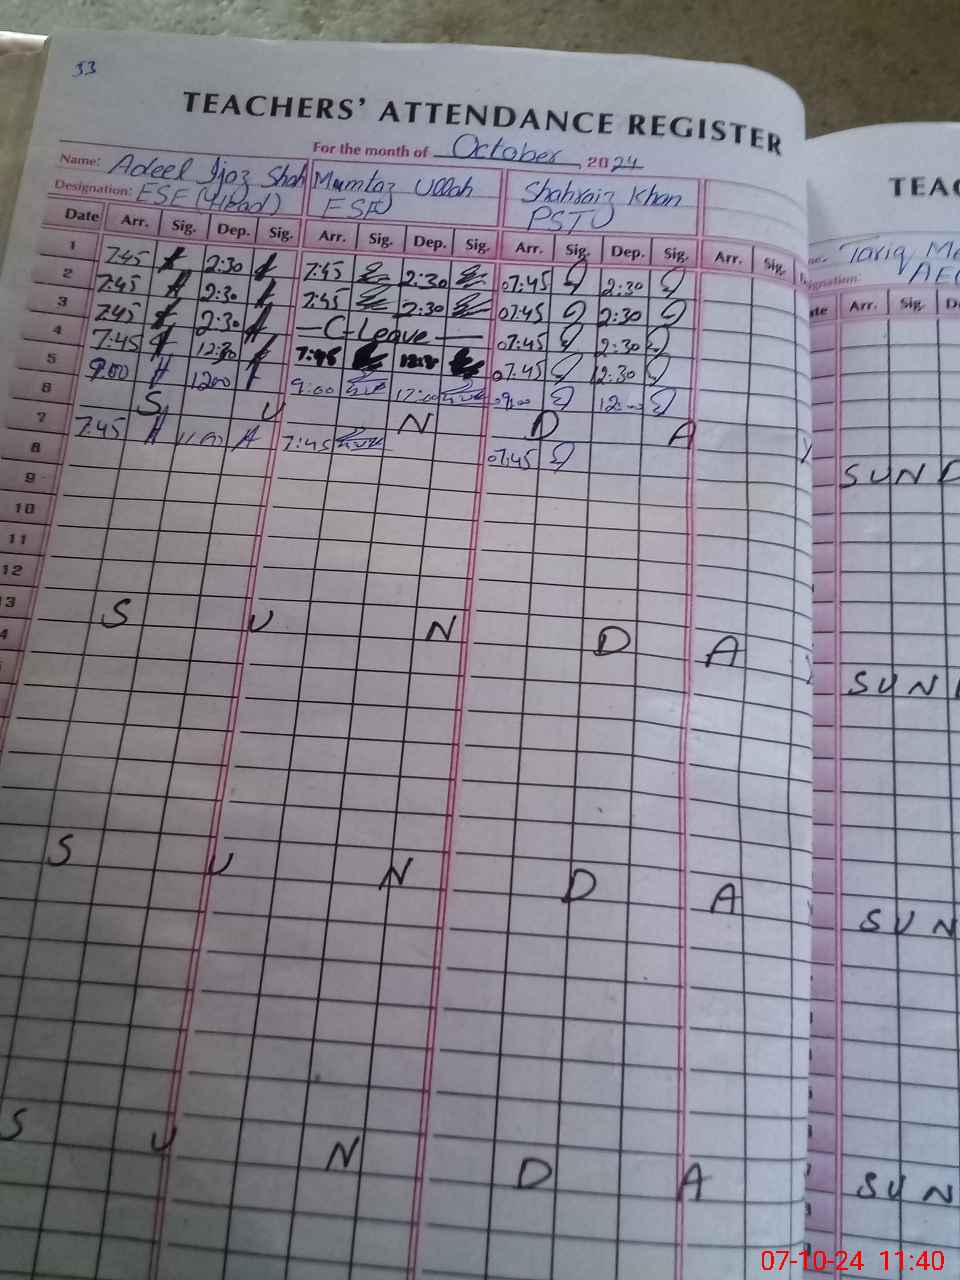 33
TEACHERS' ATTENDANCE REGISTER
For the month of October, 2024
Name: Adeel Ijaz Shah Mumtaz Ullah Shahraiz Khan
Designation: ESE (Head) ESE PSTO
Date Arr. Sig. Dep. Sig. Arr. Sig. Dep. Sig. Arr. Sig. Dep. Sig. Arr. Sig.
1 7:45 2:30 7:45 2:30 07:45 2:30
2 7:45 2:30 7:45 2:30 07:45 2:30
3 7:45 2:30 — C-Leave — 07:45 2:30
4 7:45 12:30 7:45 07:45 12:30
5 9:00 1200 9:00 12:00 09:00 12:00
6 S U N D A Y
7 7:45 7:45 07:45
8
9
10
11
12
13 S U N D A Y
4
S U N D A Y
S U N D A
TEAC
Tariq
AE
Arr. Sig. D
SUND
SUN
SUN
SUN
07-10-24 11:40